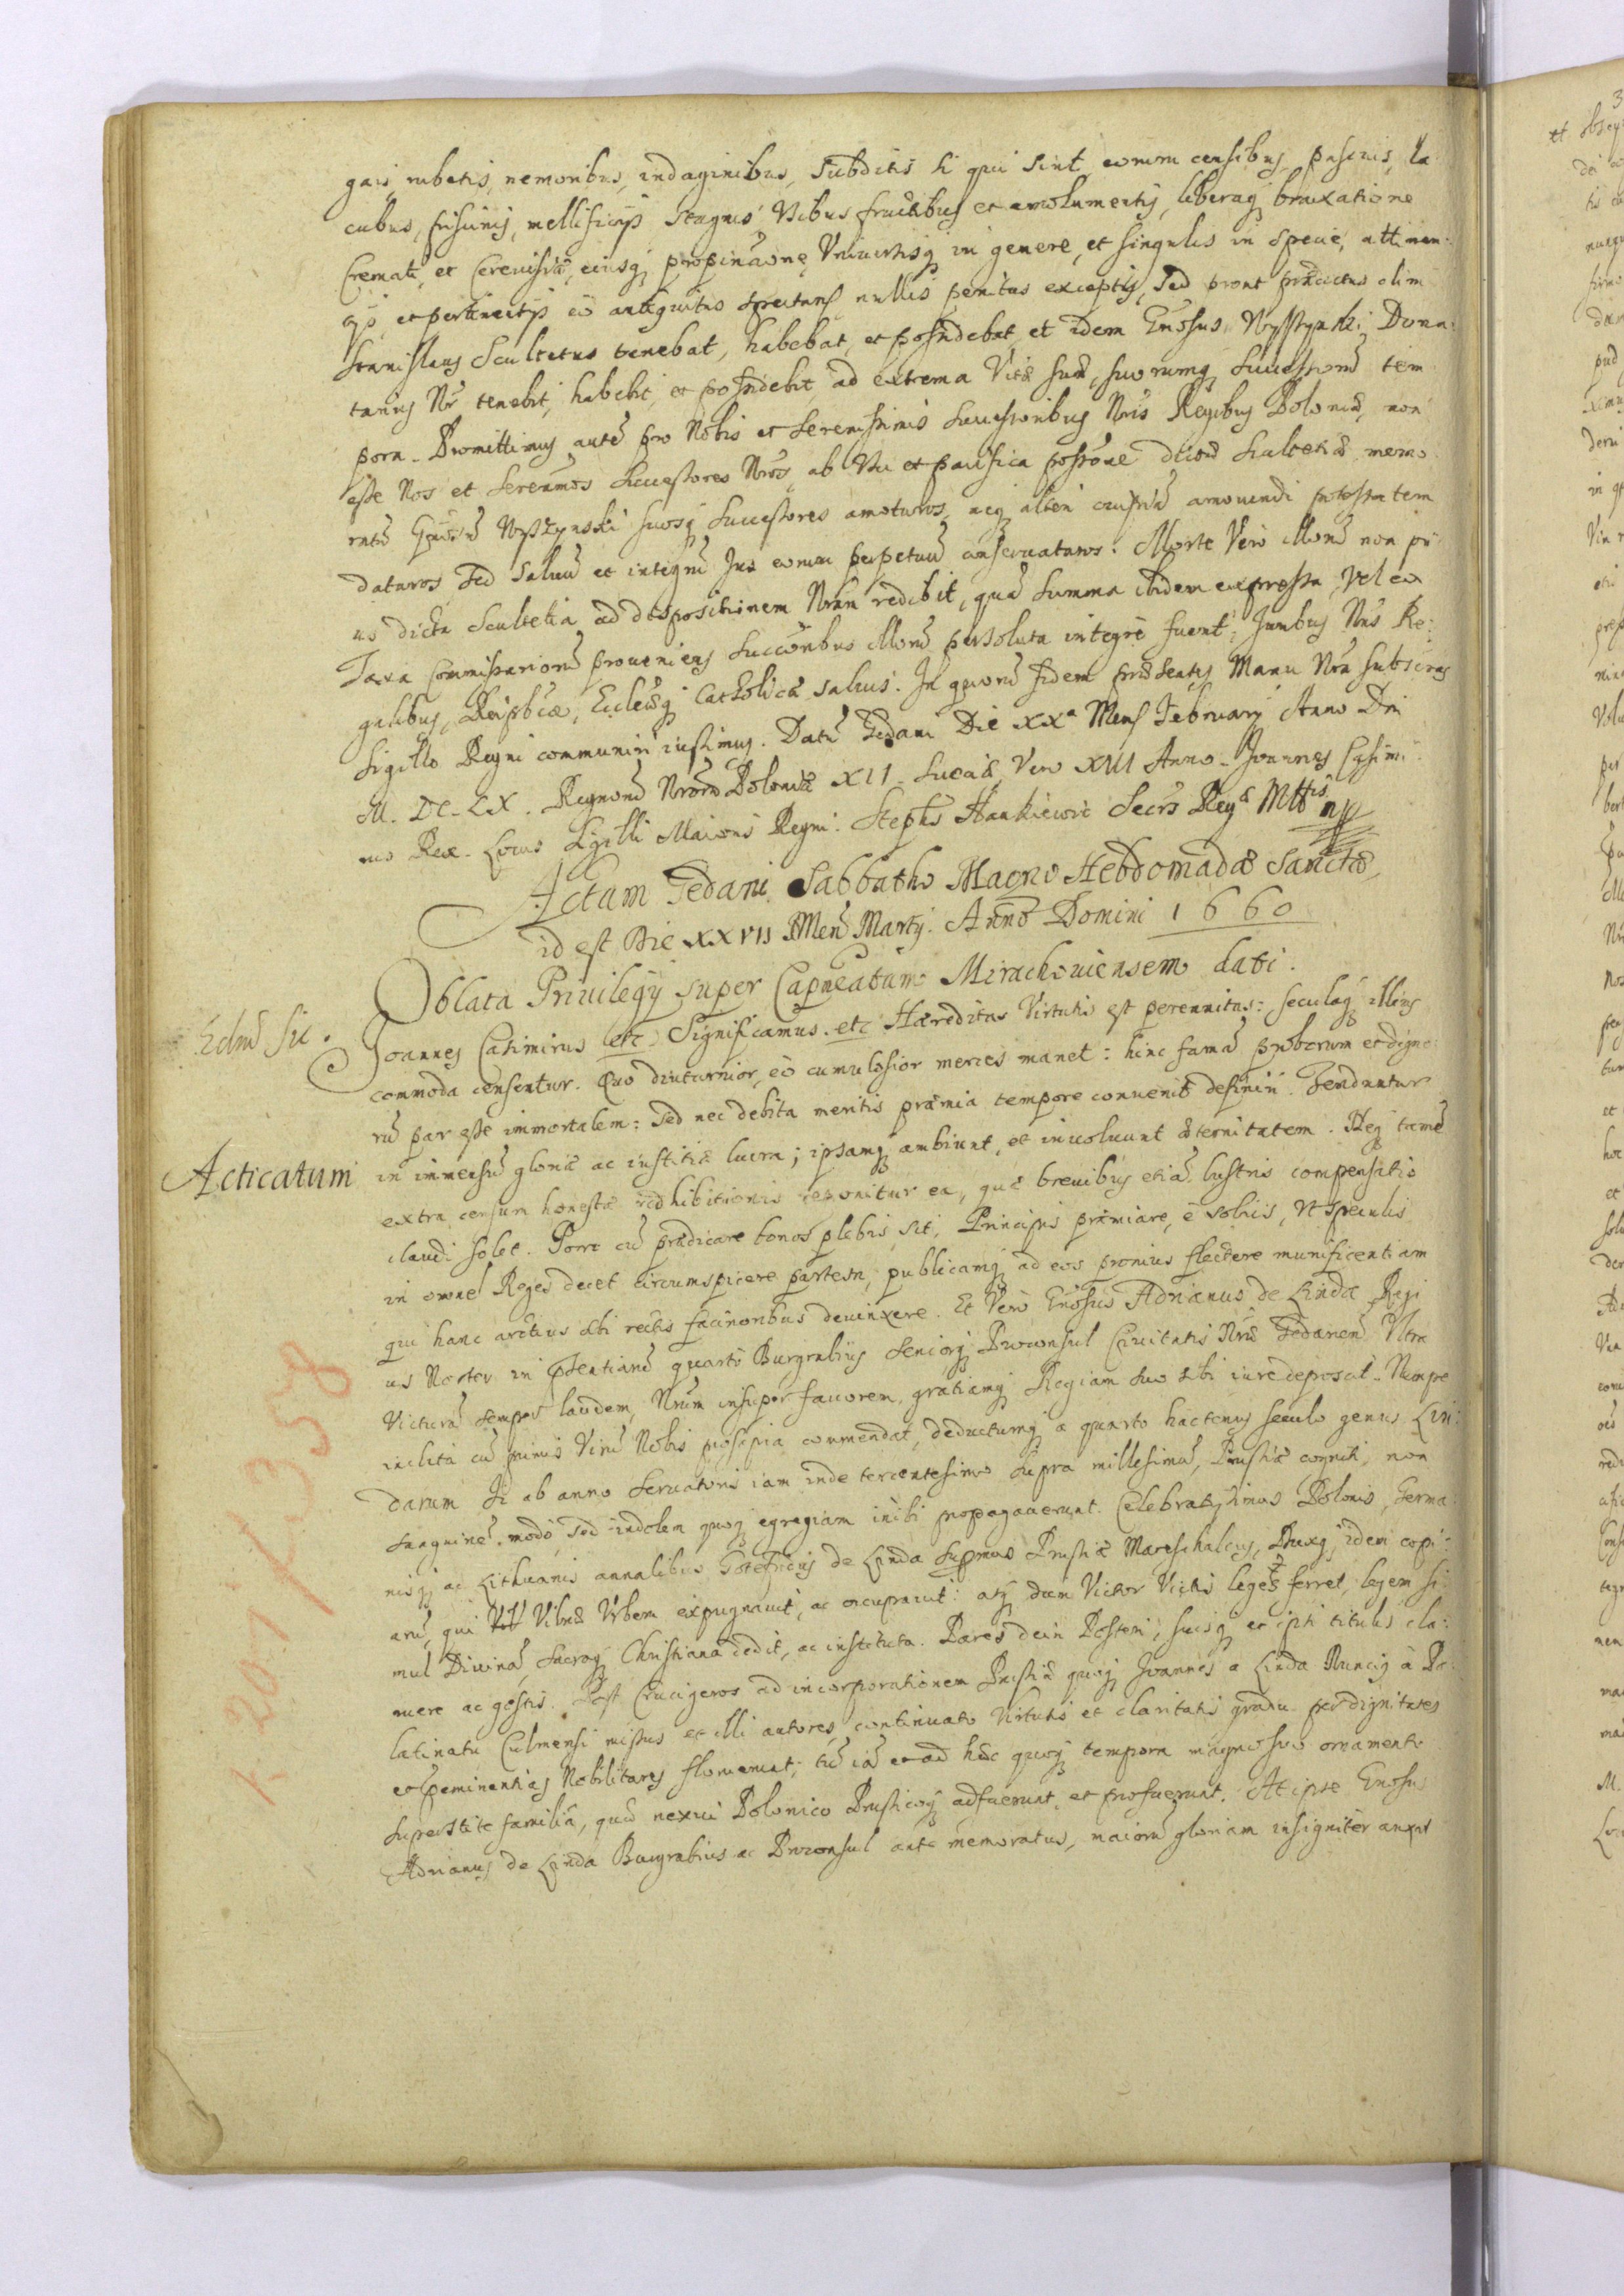 gais, rubetis, nemoribus, indaginibus, Subditis si qui sint, eorum censibus, pascuis, la
cubus, piscinis, mellificijs Stagnis Vtibus fructibus et emolumentis, liberaq; braxatione
Cremati, et Cerevisiæ, eiusq; propinaone Vniuersisq; in genere, et singulis in specie, attinen:
tijs, et pertinentijs eo antiquitus spectans nullis penitus exceptis, Sed prout prædictus olim
Stanislaus Scultetus tenebat, habebat, et possidebat, et idem Gnosus Dona:
tarius Nr tenebit, habebit, et possidebit, ad extrema Vitæ suæ, suorumq; Successorũ tem
pora. Promittimus autẽ pro Nobis et Serenissimis Successoribus Nris Regibus Poloniæ, non
esse Nos et Serenmos Successores Nros, ab Vsu et pacifica possõne dictæ Scultetiæ memo
ratũ Gnosũ suosq; Successores amoturos, neq; alteri cuipiã amouendi potestatem
daturos, Sed Saluũ et integrũ Jus eorum perpetuũ conseruaturos. Morte Vero illorũ non pri
us dicta Scultetia ad dispositionem Nrãm redibit, quã Summa ibidem expressa, vel ex
Taxa Commissariorũ proueniens Succõribus illorũ persoluta integre fuerit; Juribus Nris Re:
galibus, Reipbcæ, Ecclesiæq; Catholicæ saluis. In quorũ fidem præsentes Manu Nra Subscras
Sigillo Regni communiri iussimus. Datũ Gedani Die XXa Mens February Anno Dni
M. DC. LX. Regnorũ Nrorũ Poloniæ XII. Sueciæ Vero XIII Anno. Joannes Casimi:
rus Rex. Locus Sigilli Maioris Regni. Stephs Hankiewic Secrs Regæ Mttis mp
Actum Gedani Sabbatho Magno Hebdomadæ Sanctæ,
id est Die XXVII Mens Martij. Anno Domini 1660
Oblata Priuilegij super Capneatum Mirachouiensem dati.
Joannes Casimirus etc. Significamus. etc Hæreditas Virtutis est perennitas: Seculaq; illius
commoda censentur. Quo diuturnior, eo cumulosior merces manet: hinc famã proborum et digno:
rũ par esse immortalem: Sed nec debita meritis præmia tempore conuenit definiri. Tenduntur
Acticatum
in immensũ gloriæ ac iustitiæ lucra; ipsamq; ambiunt, et inuoluunt æternitatem. Neq; tamẽ
extra censum honestæ redhibitionis reponitur ea, quæ breuibus etiã lustris compensatio
claudi solet. Porro cũ prædicare bonos plebis sit, Principis præmiare, e Solijs, Vt speculis
in omnẽ Reges decet circumspicere partem, publicamq; ad eos pronius flectere munificentiam
qui hanc arctius sibi rectis facinoribus deuinxere. Et Vero Gnosus Adrianus de Linda Regi
us Noster in præsentiarũ quarto Burgrabius Seniorq; Proconsul Ciuitatis Nræ Gedanen Vltra
Victurã semper laudem, Nrũm insuper fauorem, gratiamq; Regiam suo sibi iure deposcit. Nempe
inclita cũ primis Virũ Nobis prosapia commendat, deductumq; a quarto hactenus seculo genus Lin:
darum Si ab anno Seruatoris iam inde tercentesimo supra millesimũ, Prussiæ cogniti, non
Sanguinẽ modo, sed indolem quoq; egregiam inibi propagauerunt. Celebratissimus Polonis, Germa
nisq; ac Lithuanis annalibus de Linda Supmus Prussiæ Mareschalcus, Duxq; idem copi:
arũ, qui Vilnæ Vrbem expugnauit, ac occupauit: atq; dum Victor Victis leges ferret, legem si
mul Diuinã, Sacraq; Christiana dedit, ac instituta. Pares dein Posteri, suisq; et ipsi titulis cla:
ruere ac gestis. Post Crucigeros ad incorporationem Prussiæ quoq; Joannes a Linda Nuncius a Pa
latinatu Culmensi missus et illi autores, continuato Virtutis et claritatis gradu per dignitates
et eminentias Nobilitares floruerunt; tũ iã et ad hæc quoq; tempora magno suo ornamento
Superstite familia, quæ nexui Polonico Prussicoq; adfuerunt, et profuerunt. At ipse Gnosus
Adrianus de Linda Burgrabius ac Proconsul ante memoratus, maiorũ gloriam insigniter auxit